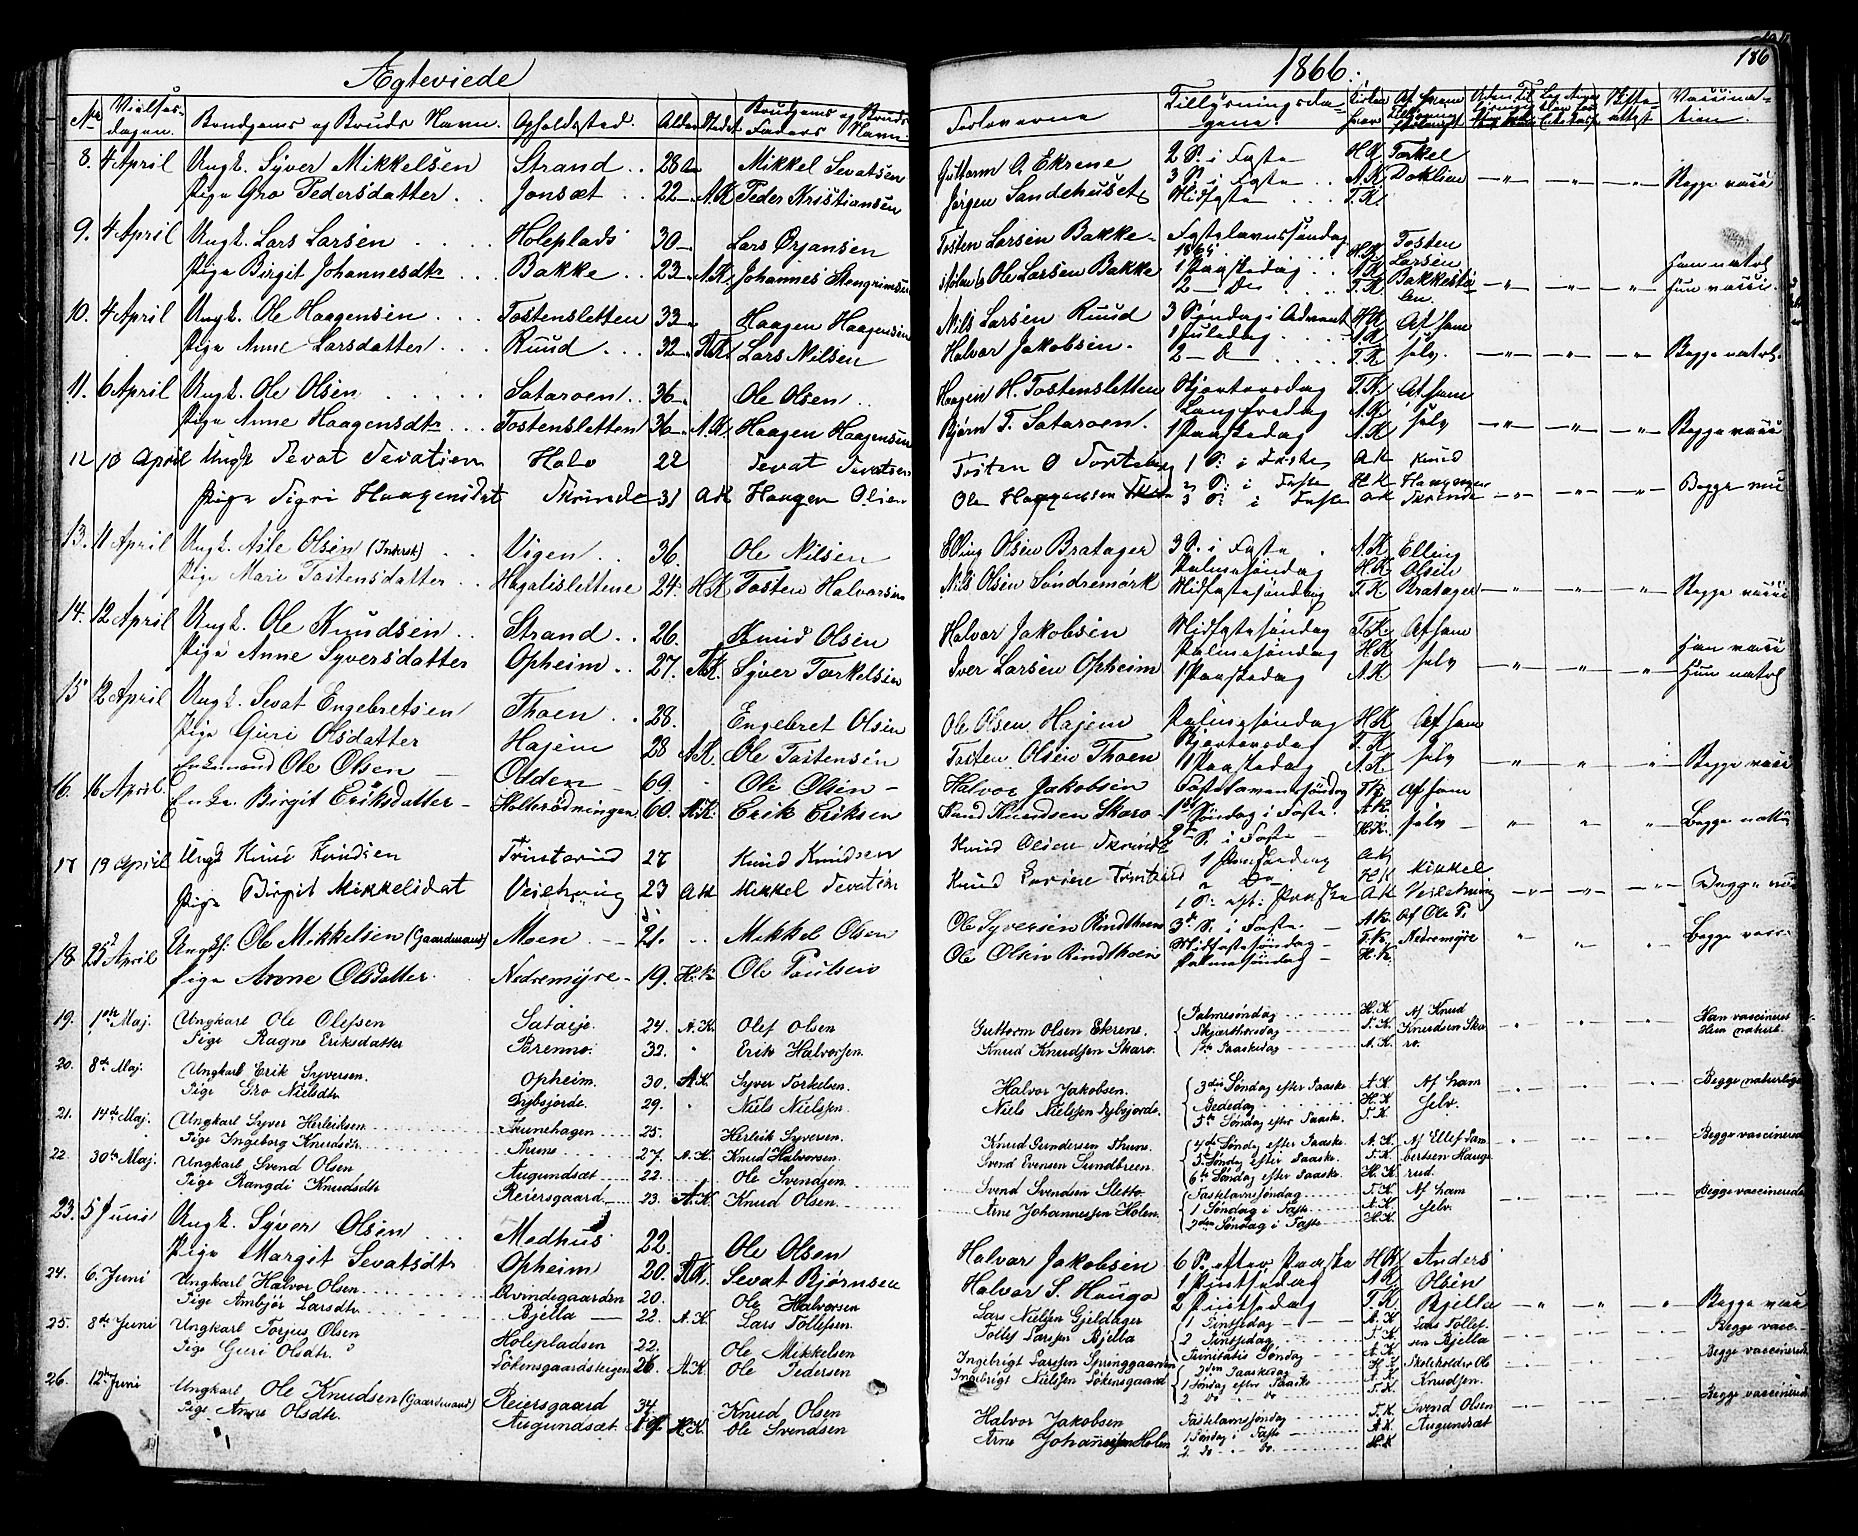 Ægteviede
1866.
186
No Vielses-dagen. Brudgoms og Bruds Navn. Opholdssted. Alder Stedet Brudgoms og Bruds Faders Navn. Forloverne Tillysningsda-gene. Vaccina-tion.
8. 4 April Ungk. Syver Mikkelsen Strand 28 Mikkel Sevatsen Guttorm O. Ekrene 2 S. i Faste H.K. Torkel
Pige Gro Pedersdatter Jonsæt 22 A.K. Peder Kristiansen Jørgen Sandehuset 3 S. i Faste A.K. Doklien Begge vacci
Midfaste T.K.
9. 4 April Ungk. Lars Larsen Holeplads 30 Lars Ørjansen Tosten Larsen Bakke Fastelavnssøndag Tosten
1865 H.K. Larsen
Pige Birgit Johannesdtr Bakke 23 A.K. Johannes Stengrimsen Ole Larsen Bakke 1 Paaskedag A.K. Bakkestø- Han natrl
2 Do T.K. len. Hun vacci.
10. 4 April Ungk. Ole Haagensen Tostensletten 33 Haagen Haagensen Nils Larsen Ruud 3 Søndag i Advent H.K. Af ham
Pige Anne Larsdatter Ruud 32 T.K. Lars Nilsen Halvor Jakobsen. 1 Juledag A.K. selv. Begge natrl.
2 D T.K.
11. 6 April Ungk. Ole Olsen Sataroen 36 Ole Olsen Haagen H. Tostensletten Skjærtorsdag T.K. Af ham
Pige Anne Haagensdtr Tostensletten 36 A.K. Haagen Haagensen Bjørn T. Sataroen. Langfredag A.K. selv Begge vacci
1 Paaskedag A.K.
12 10 April Ungk Sevat Sevatsen Halv 22 Sevat Sevatsen Tosten O 1 S: i Faste A.K. Knud
Pige Sigri Haagensdat Skrinde 31 A.K. Haagen Olsen Ole Haagensen 2 S: i Faste H.K. Haagensen Begge
3 S: i Faste A.K. Skrinde
13. 11 April Ungk. Asle Olsen (Inderst) Vigen 36. Ole Nilsen Elling Olsen Bratager 3 S. i Faste A.K. Elling
Pige Mari Tostensdatter Hagalislettene 24. H.K. Tosten Halvorsen Nils Olsen Søndremørk Palmesøndag H.K. Olsen
Midfastesøndag T.K. Bratager Begge vacci
14. 12 April Ungk. Ole Knudsen Strand 26. Knud Olsen Halvor Jakobsen Midfastesøndag T.K. Af ham
Pige Anne Syversdatter Opheim 27. T.K. Syver Torkelsen Iver Larsen Opheim Palmesøndag H.K. selv Han vacci
1 Paaskedag A.K. Hun natrl
15 12 April Ungk. Sevat Engebretsen Thoen 28. Engebret Olsen Ole Olsen Hajem Palmesøndag H.K. Af ham
Pige Guri Olsdatter Hajem 28 A.K. Ole Tostensen Tosten Olsen Thoen Skjærtorsdag T.K. selv Begge vacci
1 Paaskedag A.K.
16. 16 April Enkemand Ole Olsen Odden 69. Ole Olsen Halvor Jakobsen Fastelavnssøndag T.K. Af ham
Enke Birgit Eriksdatter 60. A.K. Erik Eriksen Knud Knudsen Skaro 1ste Søndag i Faste. A.K. selv Begge
2den S. i Faste H.K.
17 19 April Ungk Knud Knudsen Trinterud 27 Knud Knudsen Knud Olsen Skrinde 1 Paaskedag A.K.
Pige Birgit Mikkelsdat Veslehaug 23 A.K. Mikkel Sevatsen Knud 2 Do H.K. Mikkel
1 S. eft: Paaske A.K. Veslehaug Begge
18 25 April Ungkf: Ole Mikkelsen (Gaardmand) Moen 21. Mikkel Olsen Ole Syversen Rindthoen 3de S. i Faste A.K. Af Ole P.
Pige Anne Olsdatter Nedremyre 19. H.K. Ole Paulsen Ole Olsen Rindthoen Midfastesøndag T.K. Nedremyre Begge vacci
Palmesøndag H.K.
19. 1ste Maj. Ungkarl Ole Olefsen Sataeje 24. A.K. Olef Olsen Guttorm Olsen Ekrene. Palmesøndag H.K. Af Knud Han vaccineret
Pige Ragne Eriksdatter Brenno. 32. Erik Halvorsen. Knud Knudsen Skaro. Skjærthorsdag T.K. Knudsen Ska- Hun naturl.
1ste Paaskedag A.K. ro.
20. 8de Maj. Ungkarl Erik Syversen. Opheim. 30. A.K. Syver Torkelsen. Halvor Jakobsen. 3die Søndag efter Paaske A.K. Af ham Begge naturlige
Pige Gro Nielsdtr. Dybsjorde. 29. Niels Nielsen. Niels Nielsen Dybsjorde. Bededag H.K. selv.
5te Søndag efter Paaske T.K.
21. 14de Maj. Ungkarl Syver Herleiksen Thunehagen 25. Herleik Syversen. Knud Gundersen Thune. 4de Søndag efter Paaske A.K. Af Ellef Lam- Begge vaccinerede
Pige Ingeborg Knudsdtr. Thune 27. A.K. Knud Halvorsen. Svend Evensen Sundbreen. 5te Søndag efter Paaske. T.K. bertsen Hauge-
6te Søndag efter Paaske H.K. rud.
22 30te Maj. Ungkarl Svend Olsen Augundsæt 22. Ole Svendsen Svend Svendsen Sletto. Fastelavnssøndag T.K. Af ham Begge vaccinerede
Pige Rangdi Knudsdtr Reiersgaard 23. A.K. Knud Olsen. Arne Johannessen Holen. 1 Søndag i Faste A.K. selv.
2den Søndag i Faste H.K.
23. 5 Juni Ungk. Syver Olsen Medhus 22. Ole Olsen Halvor Jakobsen 6 S. efter Paaske H.K. Anders
Pige Margit Sevatsdtr Opheim 20. A.K. Sevat Bjørnsen Halvor S. Haugo 1 Pintsedag A.K. Olsen
2 Pintsedag T.K. Bjella Begge vacci
24. 6. Juni Ungkarl Halvor Olsen Arndegaarden 20. Ole Halvorsen Lars Nielsen Gjeldager 1 Pintsedag A.K. Lars Tollef- Begge vacc.
Pige Ambjør Larsdtr. Bjella 22. A.K. Lars Tollefsen. Tollef Larsen Bjella 2 Pintsedag T.K. sen Bjella
Trinitatis Søndag A.K.
25. 8de Juni Ungkarl Torjus Olsen Holepladsen 22. Ole Mikkelsen Ingebrigt Larsen Springgaarden 2den Paaskedag H.K. Skoleholder Ole Begge vaccinerede
Pige Guri Olsdtr. Løkensgaardsteigen 26. A.K. Ole Pedersen Ingebrigt Nielsen Løkensgaard 1 Søndag efter Paaske A.K. Knudsen.
2 do do T.K.
26. 12te Juni Ungkarl Ole Knudsen (Gaardmand) Reiersgaard 34. Knud Olsen Halvor Jakobsen Fastelavnssøndag T.K. Svend Olsen Begge vaccinerede
Pige Anne Olsdtr. Augundsæt 19 H.K. Ole Svendsen Arne Johannessen Holen 1 Søndag i Faste A.K. Augundsæt
2 do. do. H.K.